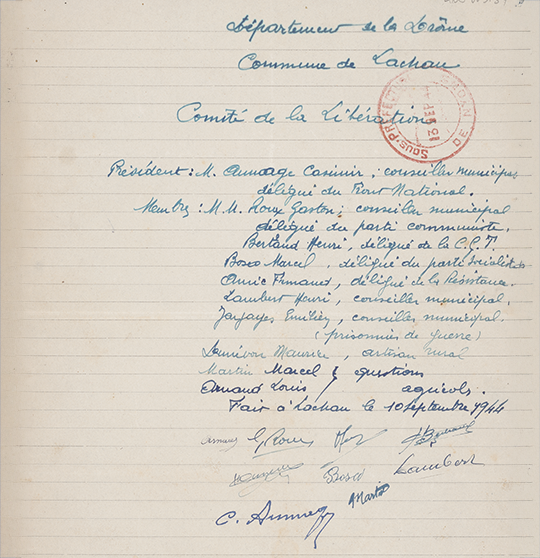 Département de la Drôme
Commune de Lachau
Comité de la Libération
SOUS-PRÉFECTURE DE
SEP
Président : M. Casimir, conseiller municipal
délégué du Front National.
Membres : M.M. Roux Gaston, conseiller municipal
délégué du parti communiste.
Bertrand Henri, délégué de la C.G.T.
Bosco Marcel, délégué du parti Socialiste
Armand, délégué de la Résistance.
Lambert Henri, conseiller municipal.
Emilien, conseiller municipal.
(prisonnier de guerre)
Maurice, artisan rural
Martin Marcel } questions
Arnaud Louis } agricols.
Fait à Lachau le 10 septembre 1944
Arnaud G Roux
Bosco Lambert
Martin
C.